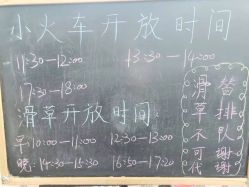 小火车开放时间
11:30-12:00 13:30-14:00
17:30-18:00
滑草开放时间:
早:10:00-11:00 12:30-13:00
晚:14:30-15:30 16:50-17:20
滑草不可代
替排队谢谢